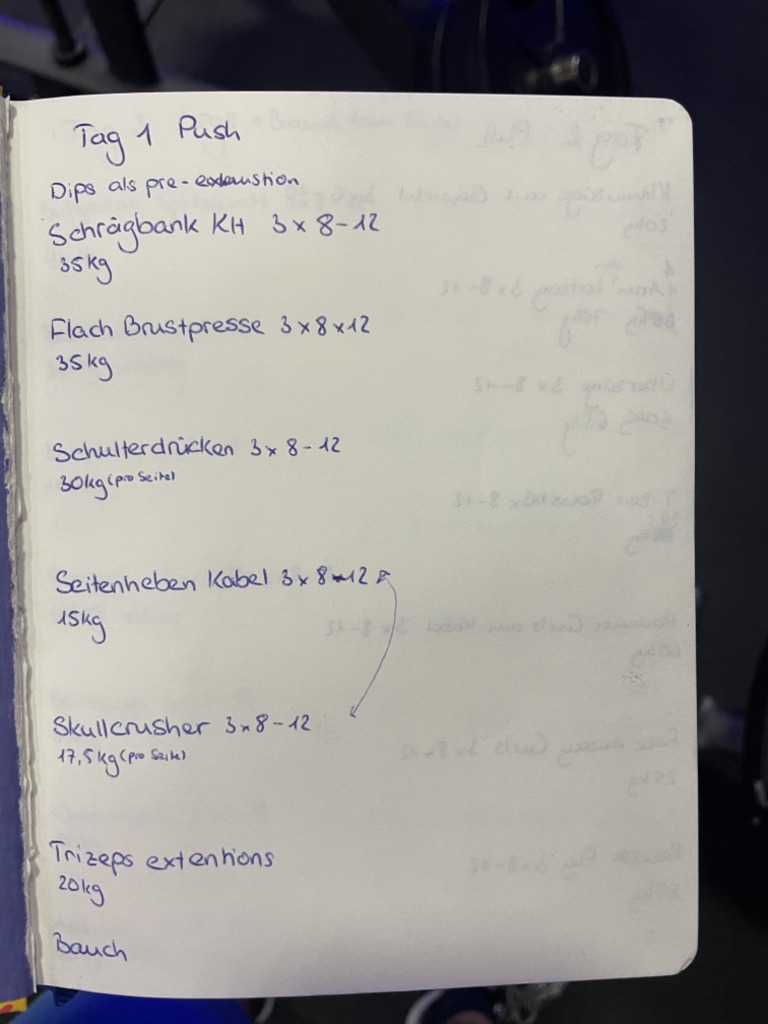 Tag 1 Push
Dips als pre-exhaustion
Schrägbank KH 3 x 8-12
35kg
Flach Brustpresse 3 x 8 x 12
35kg
Schulterdrücken 3 x 8-12
30kg (pro Seite)
Seitenheben Kabel 3 x 8-12
15kg
Skullcrusher 3 x 8-12
17,5kg (pro Seite)
Trizeps extentions
20kg
Bauch